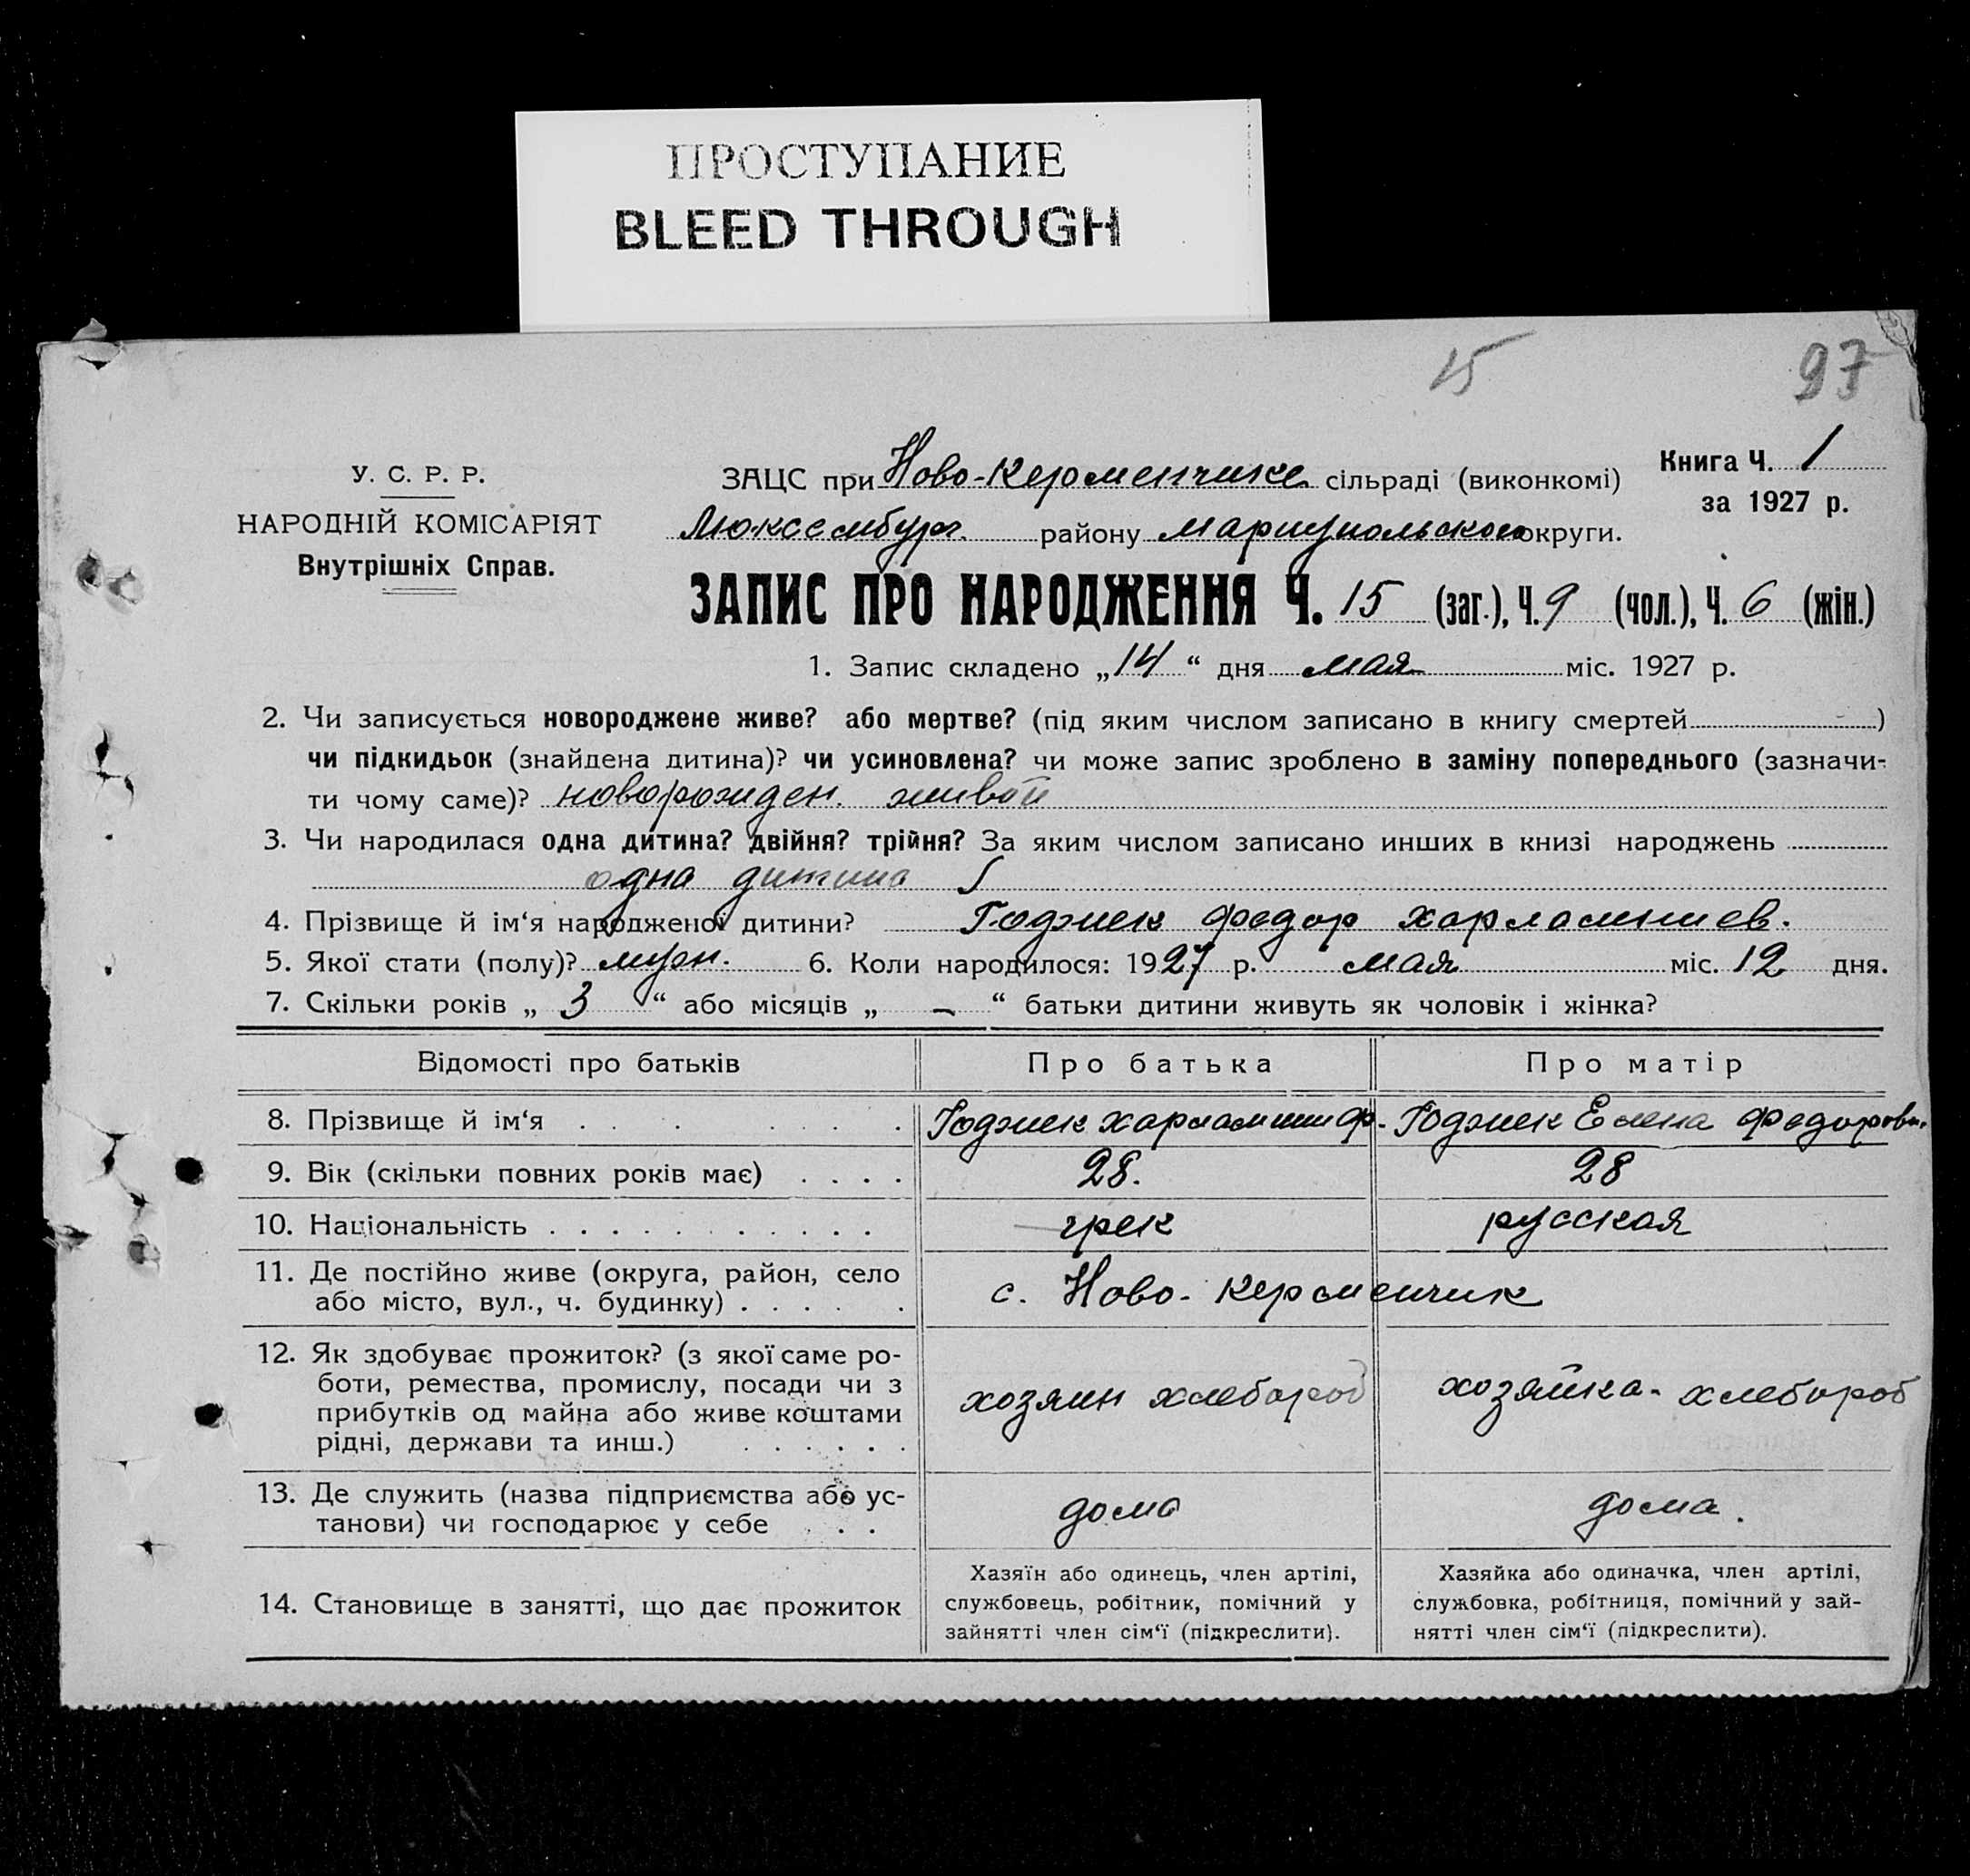 ПРОСТУПАНИЕ
BLEED THROUGH
15
97
У. С. Р. Р.
НАРОДНІЙ КОМІСАРІЯТ
Внутрішніх Справ.
ЗАЦС при Ново-Керменчике сільраді (виконкомі)
Книга Ч. 1
за 1927 р.
Люксембург. району Мариупольского округи.
ЗАПИС ПРО НАРОДЖЕННЯ Ч. 15 (заг.), Ч. 9 (чол.), Ч. 6 (жін.)
1. Запис складено „14“ дня мая міс. 1927 р.
2. Чи записується новороджене живе? або мертве? (під яким числом записано в книгу смертей )
чи підкидьок (знайдена дитина)? чи усиновлена? чи може запис зроблено в заміну попереднього (зазначи-
ти чому саме)? новорожден. живой
3. Чи народилася одна дитина? двійня? трійня? За яким числом записано инших в книзі народжень
одна дитина
4. Прізвище й ім‘я народженої дитини? Годжек Федор Харлампиев.
5. Якої стати (полу)? муж. 6. Коли народилося: 1927 р. мая міс. 12 дня.
7. Скільки років „ 3 “ або місяців „ – “ батьки дитини живуть як чоловік і жінка?
Відомості про батьків Про батька Про матір
8. Прізвище й ім‘я . . . . . . . Годжек Харлампий Ф. Годжек Елена Федоровн.
9. Вік (скільки повних років має) . . . . 28. 28
10. Національність . . . . . . . . . . . грек русская
11. Де постійно живе (округа, район, село
або місто, вул., ч. будинку) . . . . . . с. Ново-Керменчик
12. Як здобуває прожиток? (з якої саме ро-
боти, ремества, промислу, посади чи з
прибутків од майна або живе коштами
рідні, держави та инш.) . . . . . .
хозяин хлебороб хозяйка-хлебороб
13. Де служить (назва підприємства або ус-
танови) чи господарює у себе . . .
дома дома.
14. Становище в занятті, що дає прожиток
Хазяїн або одинець, член артілі,
службовець, робітник, помічний у
зайнятті член сім‘ї (підкреслити).
Хазяйка або одиначка, член артілі,
службовка, робітниця, помічний у зай-
нятті член сім‘ї (підкреслити).